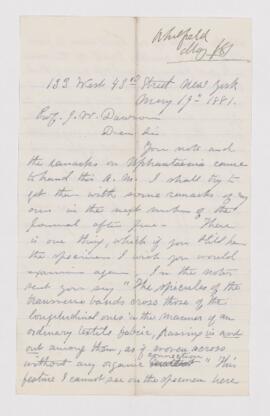 Whitfield
May 19
133 West 43rd Street New York
May 19th 1881.
Prof. J. W. Dawson
Dear Sir
Your note and
the remarks on Uphantaenia came
to hand this A.M. I shall try to
get them with some remarks of my
own in the next number of the
Journal after June. There
is one thing, which if you still have
the specimen I wish you would
examine again. In the notes
sent you say "The spicules of the
transverse bands cross those of the
longitudinal ones in the manner of an
ordinary textile fabric, passing in and
out among them, as if woven across
without any organic connection" This
feature I cannot see on the specimen here